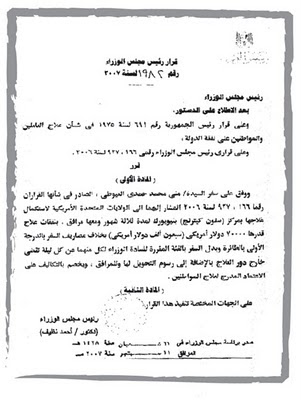 قرار رئيس مجلس الوزراء
رقم ١٩٨٢ لسنة ٢٠٠٧
رئيس مجلس الوزراء
بعد الاطلاع على الدستور.
وعلى قرار رئيس الجمهورية رقم ٦٩١ لسنة ١٩٧٥ فى شأن علاج العاملين
والمواطنين على نفقة الدولة،
وعلى قرارى رئيس مجلس الوزراء رقمى ١٦٦، ٩٢٧ لسنة ٢٠٠٦.
قرر
(المادة الأولى)
ووفق على سفر السيدة/ منى محمد حمدى العيوطى، الصادر فى شأنها القراران
رقما ١٦٦، ٩٢٧ لسنة ٢٠٠٦ المشار إليهما إلى الولايات المتحدة الأمريكية لاستكمال
علاجها بمركز (سلون كيترنج) بنيويورك لمدة ثلاثة شهور ومعها مرافق، بنفقات علاج
قدرها ٧٠٠٠٠ دولار أمريكى (سبعون ألف دولار أمريكى) بخلاف مصاريف السفر بالدرجة
الأولى بالطائرة وبدل السفر بالفئة المقررة للسادة الوزراء لكل منهما عن كل ليلة تقضى
خارج دور العلاج بالإضافة إلى رسوم التحويل لها وللمرافق، ويخصم بالتكاليف على
الاعتماد المدرج لعلاج المواطنين.
(المادة الثانية)
على الجهات المختصة تنفيذ هذا القرار.
رئيس مجلس الوزراء
(دكتور / أحمد نظيف)
صدر برئاسة مجلس الوزراء فى شعبان سنة ١٤٢٨ هـ
الموافق سبتمبر سنة ٢٠٠٧ م